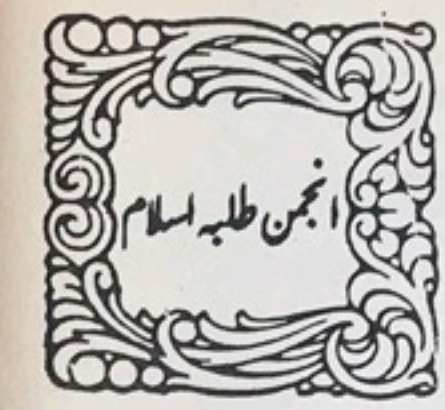 انجمن طلبہ اسلام